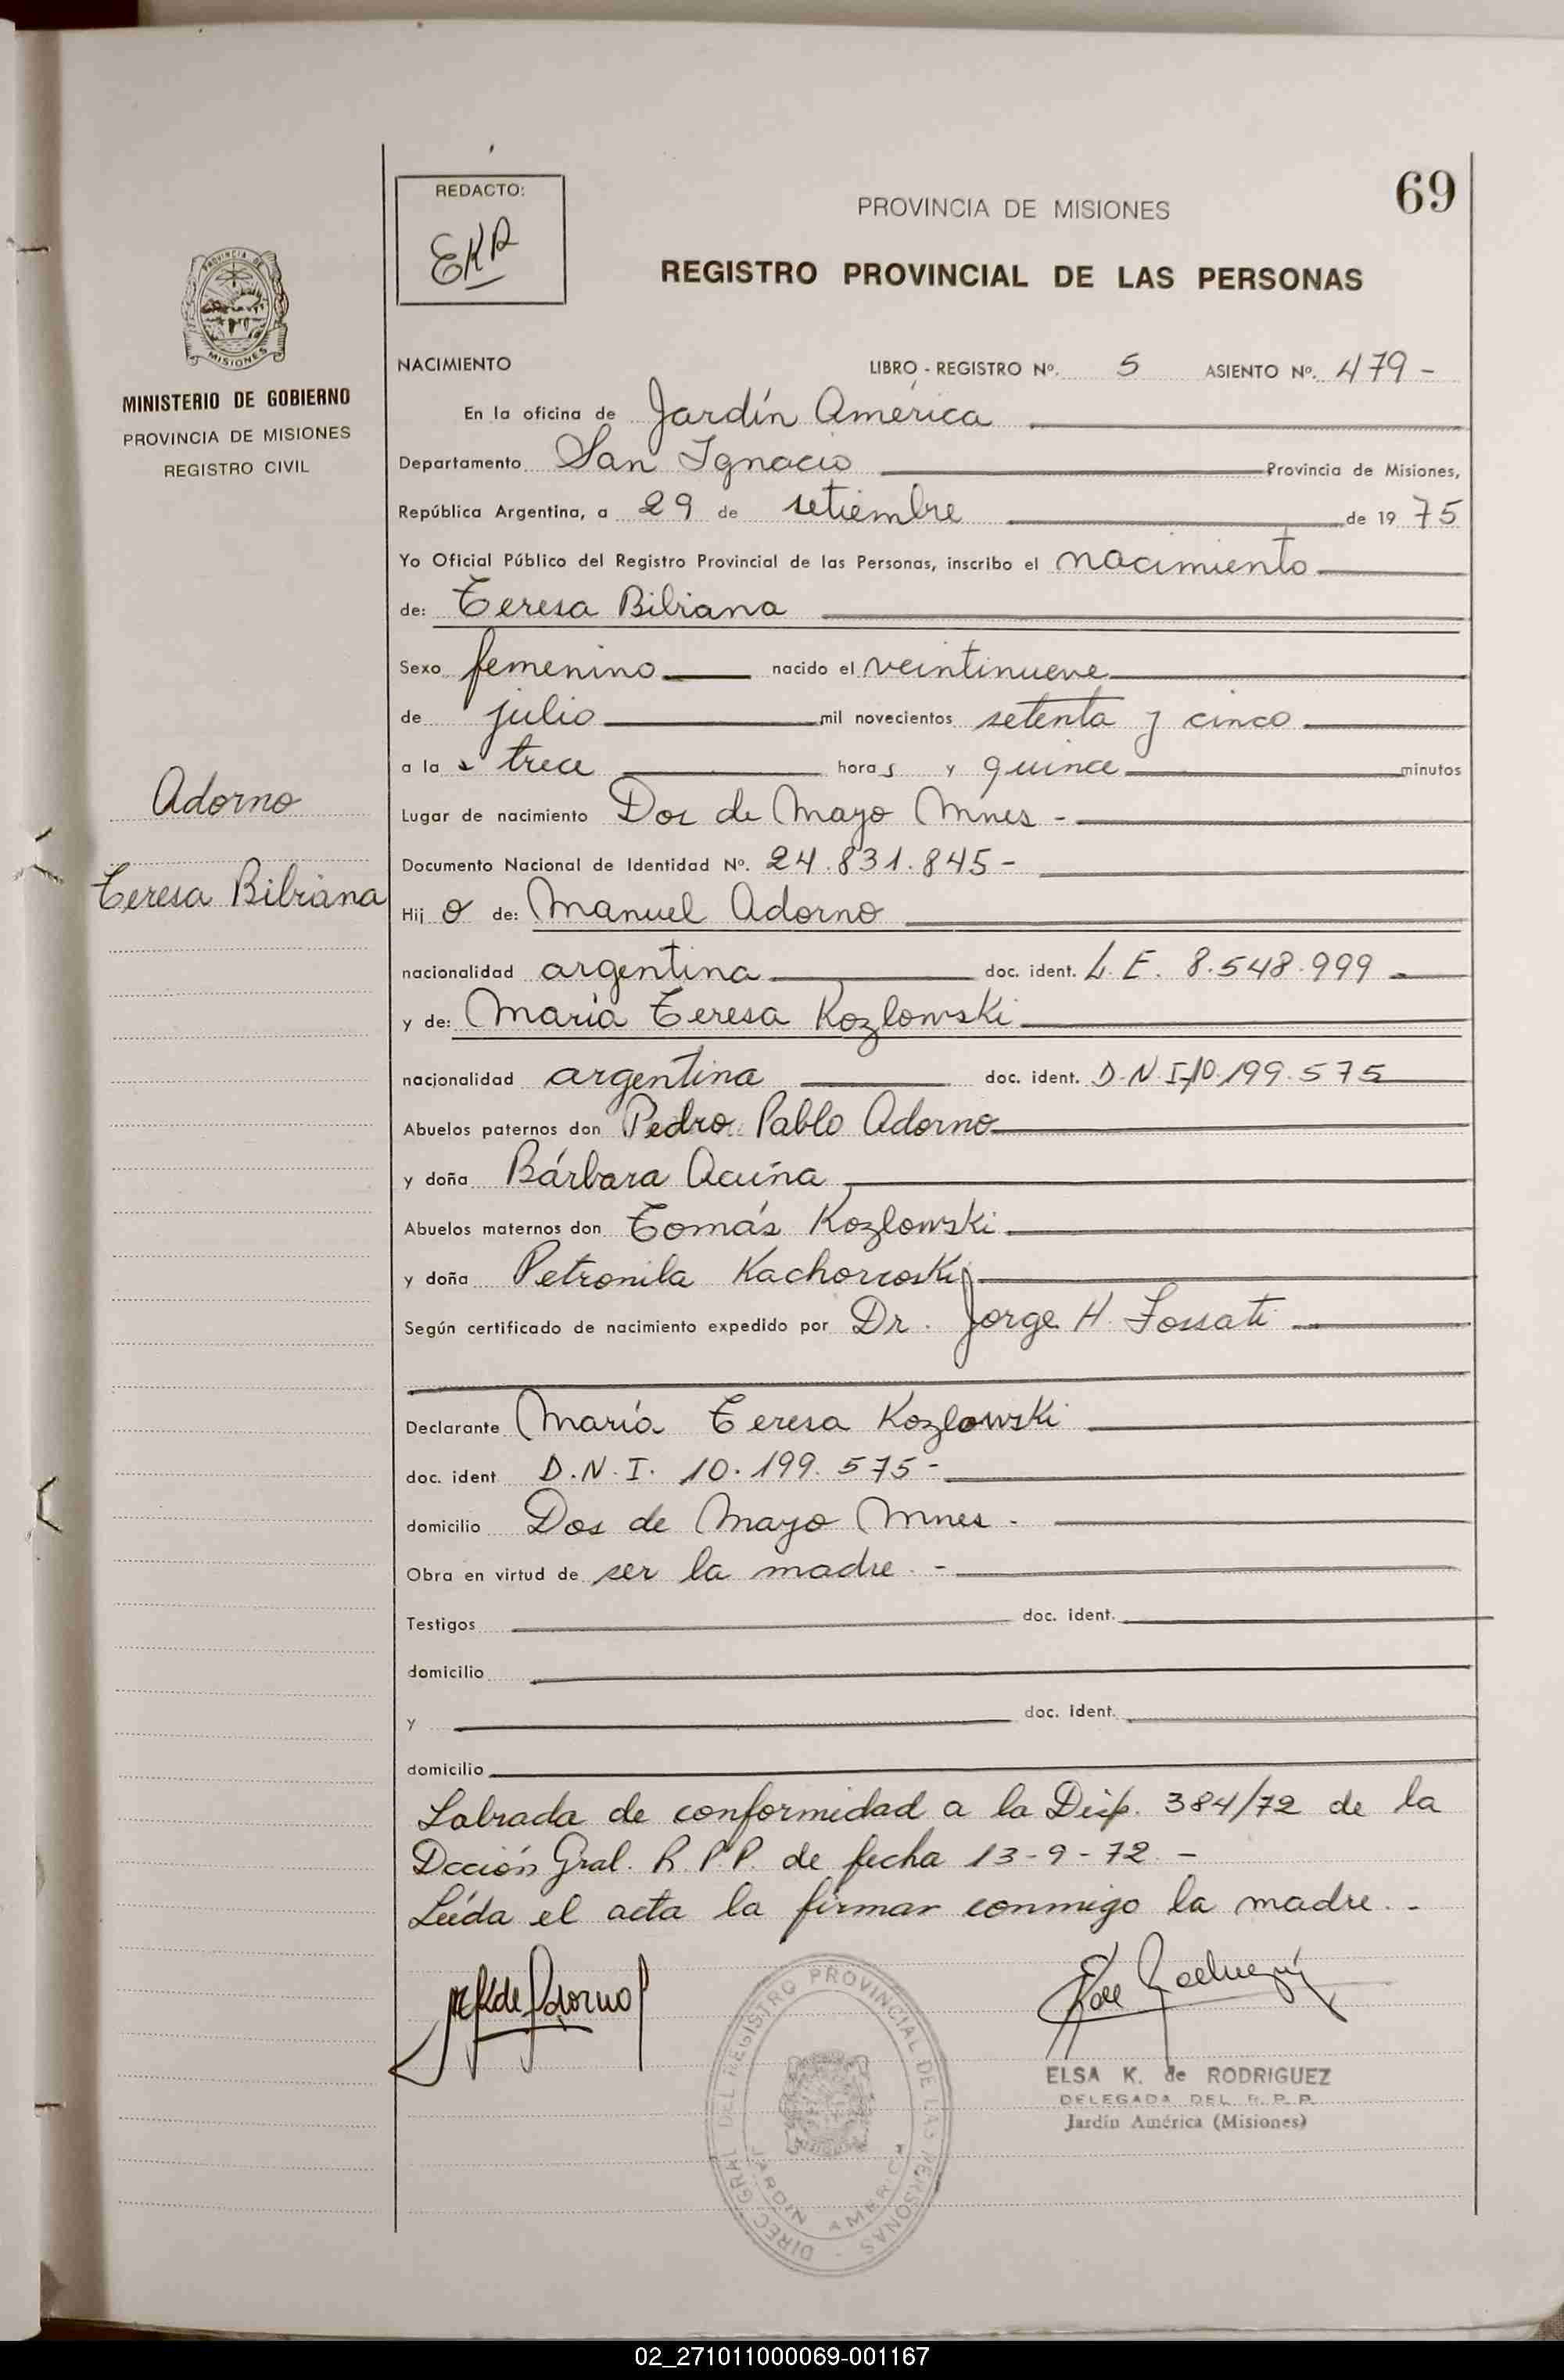 69
REDACTO:
EKR
PROVINCIA DE MISIONES
REGISTRO PROVINCIAL DE LAS PERSONAS
PROVINCIA DE
MISIONES
MINISTERIO DE GOBIERNO
PROVINCIA DE MISIONES
REGISTRO CIVIL
NACIMIENTO LIBRO - REGISTRO Nº. 5 ASIENTO Nº. 479 -
En la oficina de Jardín América
Departamento San Ignacio Provincia de Misiones,
República Argentina, a 29 de setiembre de 19 75
Yo Oficial Público del Registro Provincial de las Personas, inscribo el nacimiento
de: Teresa Bibiana
Sexo femenino nacido el veintinueve
de julio mil novecientos setenta y cinco
a la s trece horas y quince minutos
Adorno
Teresa Bibiana
Lugar de nacimiento Dos de Mayo Mnes -
Documento Nacional de Identidad Nº. 24.831.845 -
Hij o de: Manuel Adorno
nacionalidad argentina doc. ident. L. E. 8.548.999 -
y de: María Teresa Kozlowski
nacionalidad argentina doc. ident. D.N.I. 10.199.575
Abuelos paternos don Pedro Pablo Adorno
y doña Bárbara Acuña
Abuelos maternos don Tomás Kozlowski
y doña Petronila
Según certificado de nacimiento expedido por Dr. Jorge H. Fossati
Declarante María Teresa Kozlowski
doc. ident. D.N.I. 10.199.575 -
domicilio Dos de Mayo Mnes -
Obra en virtud de ser la madre. -
Testigos doc. ident.
domicilio
y doc. ident.
domicilio
Labrada de conformidad a la Disp. 384/72 de la
Dcción Gral. R.P.P. de fecha 13-9-72 -
Leída el acta la firmar conmigo la madre. -
DIREC. GRAL. DEL REGISTRO PROVINCIAL DE LAS PERSONAS -
JARDIN AMERICA
ELSA K. de RODRIGUEZ
DELEGADA DEL R. P. P.
Jardín América (Misiones)
02_271011000069-001167